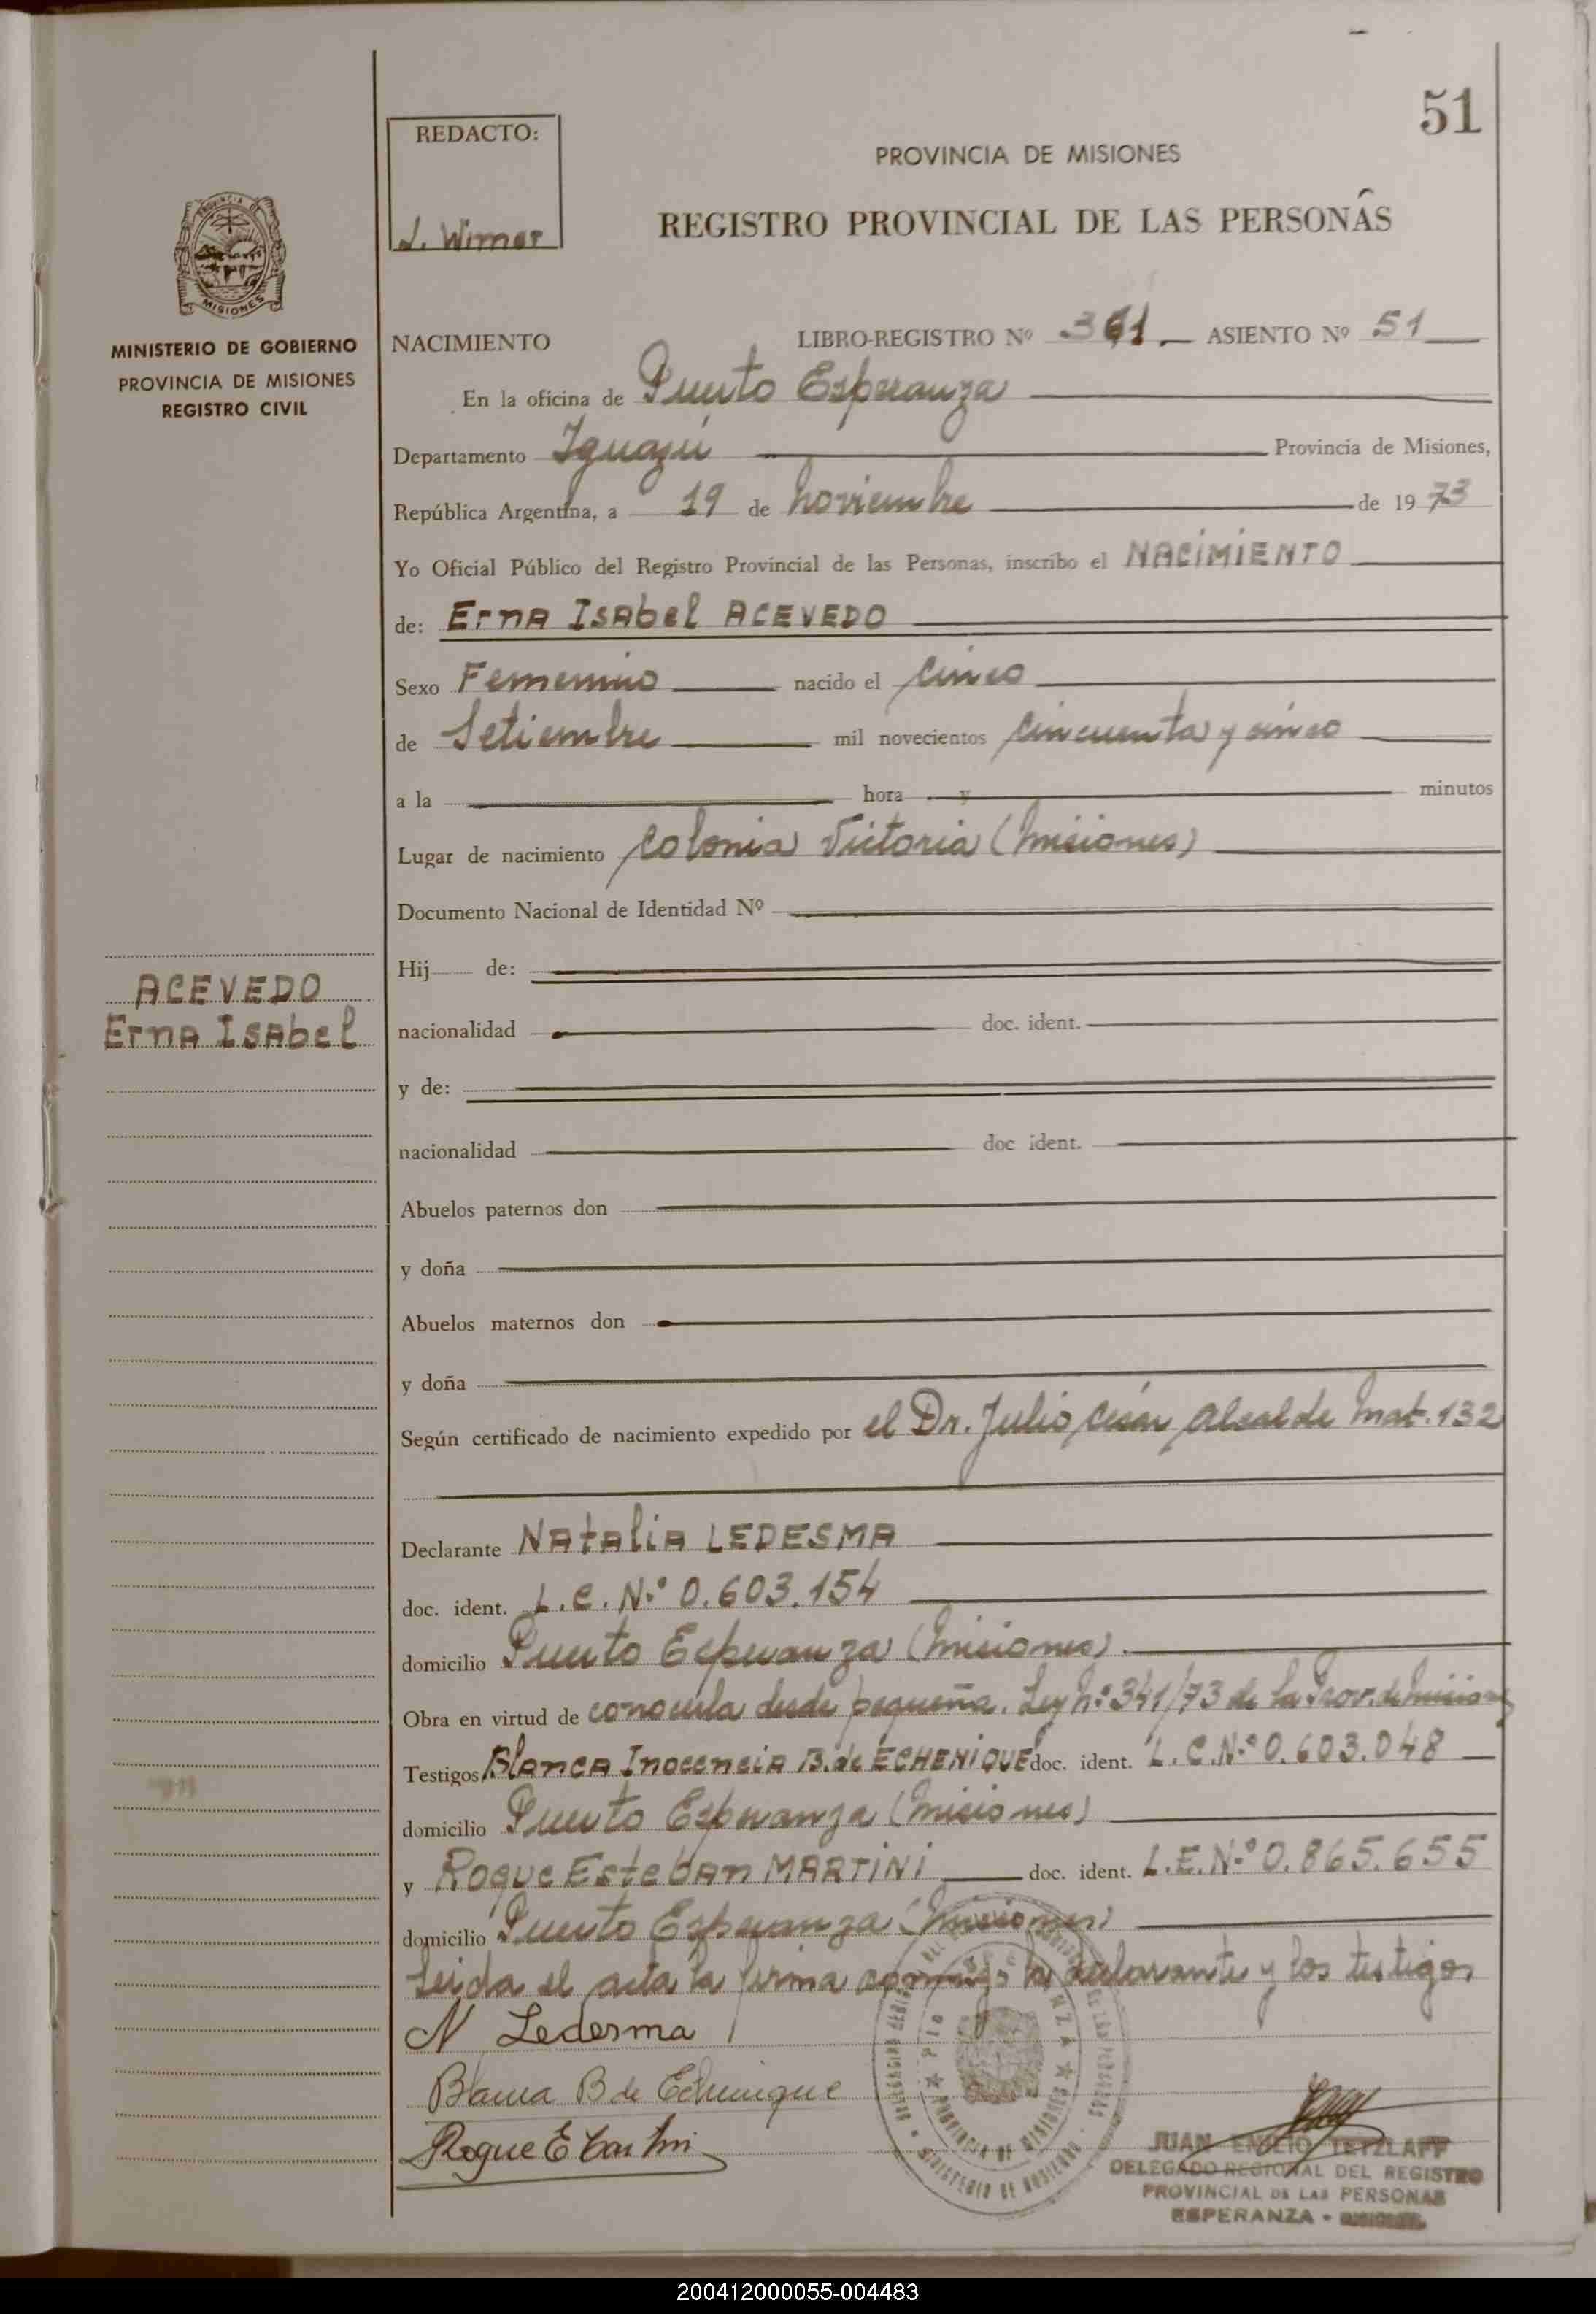 51
REDACTO:
L. Wimer
PROVINCIA DE MISIONES
REGISTRO PROVINCIAL DE LAS PERSONAS
PROVINCIA DE
MISIONES
MINISTERIO DE GOBIERNO
PROVINCIA DE MISIONES
REGISTRO CIVIL
NACIMIENTO LIBRO-REGISTRO Nº ASIENTO Nº 51
En la oficina de Puerto Esperanza
Departamento Iguazú Provincia de Misiones,
República Argentina, a 19 de noviembre de 1973
Yo Oficial Público del Registro Provincial de las Personas, inscribo el NACIMIENTO
de: Erna Isabel ACEVEDO
Sexo Femenino nacido el cinco
de Setiembre mil novecientos cincuenta y cinco
a la hora y minutos
Lugar de nacimiento Colonia Victoria (Misiones)
Documento Nacional de Identidad Nº
Hij de:
ACEVEDO
Erna Isabel
nacionalidad doc. ident.
y de:
nacionalidad doc ident.
Abuelos paternos don
y doña
Abuelos maternos don
y doña
Según certificado de nacimiento expedido por el Dr. Julio César Alcalde Mat. 132
Declarante Natalia LEDESMA
doc. ident. L.C. N.º 0.603.154
domicilio Puerto Esperanza (Misiones).
Obra en virtud de conocerla desde pequeña. Ley Nº 341/73 de la Prov. de Misiones
Testigos Blanca Inocencia B. de ECHENIQUE doc. ident. L.C.N.º 0.603.048
domicilio Puerto Esperanza (Misiones)
y Roque Esteban MARTINI doc. ident. L.E.N.º 0.865.655
domicilio Puerto Esperanza (Misiones)
Leída el acta la firma conmigo la declarante y los testigos
N Ledesma
Blanca B de Echenique
Roque E Martini
JUAN EMILIO TETZLAFF
DELEGADO REGIONAL DEL REGISTRO
PROVINCIAL DE LAS PERSONAS
ESPERANZA - MISIONES
200412000055-004483